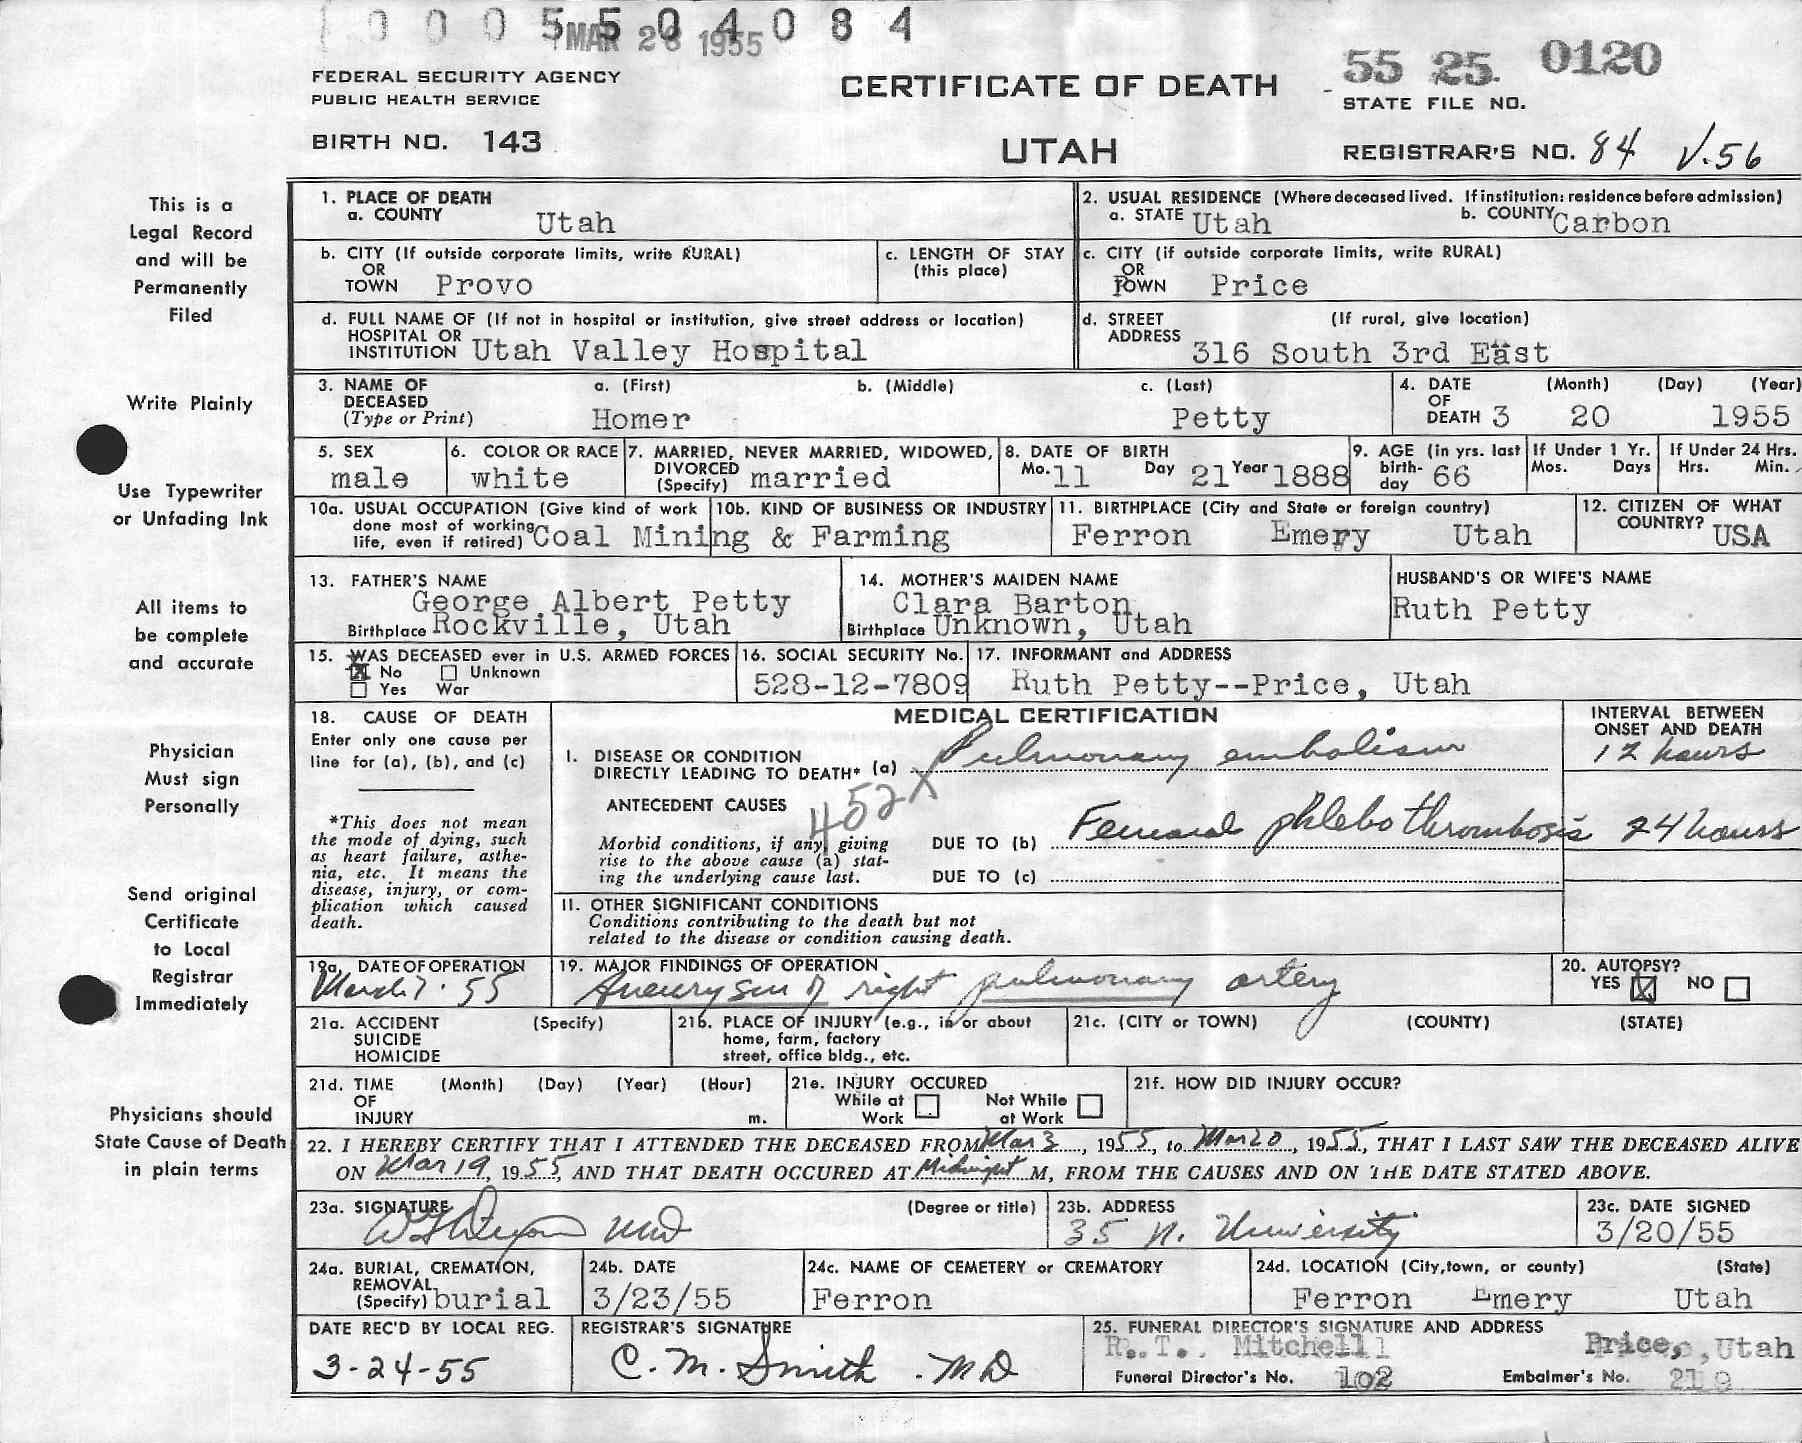 1 0 0 0 5 5 0 4 0 8 4
MAR 28 1955
FEDERAL SECURITY AGENCY
PUBLIC HEALTH SERVICE
BIRTH NO. 143
CERTIFICATE OF DEATH
UTAH
55 25 0120
STATE FILE NO.
REGISTRAR'S NO. 84 V.56
This is a
Legal Record
and will be
Permanently
Filed
Write Plainly
Use Typewriter
or Unfading Ink
All items to
be complete
and accurate
Physician
Must sign
Personally
Send original
Certificate
to Local
Registrar
Immediately
Physicians should
State Cause of Death
in plain terms
1. PLACE OF DEATH
a. COUNTY Utah
2. USUAL RESIDENCE (Where deceased lived. If institution: residence before admission)
a. STATE Utah b. COUNTY Carbon
b. CITY (If outside corporate limits, write RURAL)
OR
TOWN Provo
c. LENGTH OF STAY
(this place)
c. CITY (if outside corporate limits, write RURAL)
OR
TOWN Price
d. FULL NAME OF (If not in hospital or institution, give street address or location)
HOSPITAL OR
INSTITUTION Utah Valley Hospital
d. STREET (If rural, give location)
ADDRESS 316 South 3rd East
3. NAME OF a. (First) b. (Middle) c. (Last)
DECEASED
(Type or Print) Homer Petty
4. DATE (Month) (Day) (Year)
OF
DEATH 3 20 1955
5. SEX
male
6. COLOR OR RACE
white
7. MARRIED, NEVER MARRIED, WIDOWED,
DIVORCED
(Specify) married
8. DATE OF BIRTH
Mo. 11 Day 21 Year 1888
9. AGE (in yrs. last
birth-
day 66
If Under 1 Yr.
Mos. Days
If Under 24 Hrs.
Hrs. Min.
10a. USUAL OCCUPATION (Give kind of work
done most of working
life, even if retired) Coal Mining & Farming
10b. KIND OF BUSINESS OR INDUSTRY
11. BIRTHPLACE (City and State or foreign country)
Ferron Emery Utah
12. CITIZEN OF WHAT
COUNTRY? USA
13. FATHER'S NAME
George Albert Petty
Birthplace Rockville, Utah
14. MOTHER'S MAIDEN NAME
Clara Barton
Birthplace Unknown, Utah
HUSBAND'S OR WIFE'S NAME
Ruth Petty
15. WAS DECEASED ever in U.S. ARMED FORCES
No Unknown
Yes War
16. SOCIAL SECURITY No.
528-12-7809
17. INFORMANT and ADDRESS
Ruth Petty--Price, Utah
18. CAUSE OF DEATH
Enter only one cause per
line for (a), (b), and (c)
*This does not mean
the mode of dying, such
as heart failure, asthe-
nia, etc. It means the
disease, injury, or com-
plication which caused
death.
MEDICAL CERTIFICATION
INTERVAL BETWEEN
ONSET AND DEATH
I. DISEASE OR CONDITION
DIRECTLY LEADING TO DEATH* (a) Pulmonary embolism 12 hours
452X
ANTECEDENT CAUSES
Morbid conditions, if any, giving
rise to the above cause (a) stat-
ing the underlying cause last.
DUE TO (b) Femoral phlebothrombosis 24 hours
DUE TO (c)
11. OTHER SIGNIFICANT CONDITIONS
Conditions contributing to the death but not
related to the disease or condition causing death.
19a. DATE OF OPERATION
March 7. 55
19. MAJOR FINDINGS OF OPERATION
Aneurysm of right pulmonary artery
20. AUTOPSY?
YES NO
21a. ACCIDENT (Specify)
SUICIDE
HOMICIDE
21b. PLACE OF INJURY (e.g., in or about
home, farm, factory
street, office bldg., etc.
21c. (CITY or TOWN) (COUNTY) (STATE)
21d. TIME (Month) (Day) (Year) (Hour)
OF
INJURY m.
21e. INJURY OCCURED
While at Work Not While at Work
21f. HOW DID INJURY OCCUR?
22. I HEREBY CERTIFY THAT I ATTENDED THE DECEASED FROM Mar 3, 1955, to Mar 20, 1955, THAT I LAST SAW THE DECEASED ALIVE
ON Mar 19, 1955, AND THAT DEATH OCCURED AT Midnight M, FROM THE CAUSES AND ON THE DATE STATED ABOVE.
23a. SIGNATURE (Degree or title)
MD
23b. ADDRESS
35 N. University
23c. DATE SIGNED
3/20/55
24a. BURIAL, CREMATION,
REMOVAL
(Specify) burial
24b. DATE
3/23/55
24c. NAME OF CEMETERY or CREMATORY
Ferron
24d. LOCATION (City, town, or county) (State)
Ferron Emery Utah
DATE REC'D BY LOCAL REG.
3-24-55
REGISTRAR'S SIGNATURE
C. M. Smith . MD
25. FUNERAL DIRECTOR'S SIGNATURE AND ADDRESS
R. T. Mitchell Price, Utah
Funeral Director's No. 102 Embalmer's No. 219